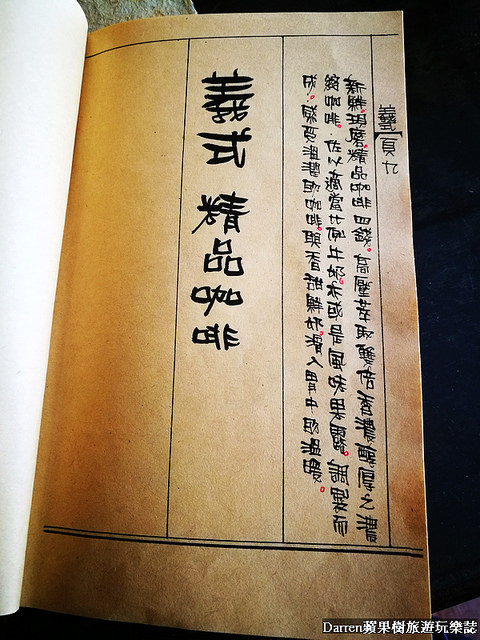 義 頁九
新鮮現磨。精品咖啡四錢。高壓萃取雙倍香濃醇厚之濃
縮咖啡。佐以適當比例牛奶。亦或是風味果露。調製而
成。感受溫潤的咖啡。與香甜鮮奶。滑入胃中的溫暖。
義式 精品咖啡
Darren蘋果樹旅遊玩樂誌